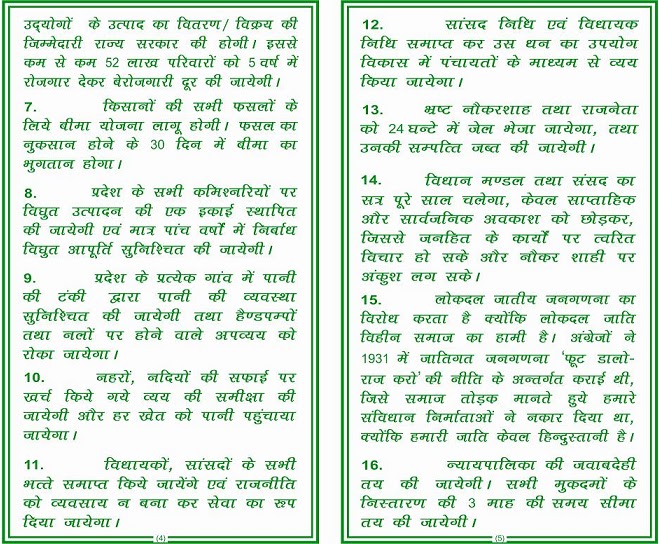 उद्योगों के उत्पाद का वितरण/ विक्रय की
जिम्मेदारी राज्य सरकार की होगी। इससे
कम से कम 52 लाख परिवारों को 5 वर्ष में
रोजगार देकर बेरोजगारी दूर की जायेगी।
7. किसानों की सभी फसलों के
लिये बीमा योजना लागू होगी। फसल का
नुकसान होने के 30 दिन में बीमा का
भुगतान होगा।
8. प्रदेश के सभी कमिश्नरियों पर
विघुत उत्पादन की एक इकाई स्थापित
की जायेगी एवं मात्र पांच वर्षों में निर्बाध
विघुत आपूर्ति सुनिश्चित की जायेगी।
9. प्रदेश के प्रत्येक गांव में पानी
की टंकी द्वारा पानी की व्यवस्था
सुनिश्चित की जायेगी तथा हैण्डपम्पों
तथा नलों पर होने वाले अपव्यय को
रोका जायेगा।
10. नहरों, नदियों की सफाई पर
खर्च किये गये व्यय की समीक्षा की
जायेगी और हर खेत को पानी पहुंचाया
जायेगा।
11. विधायकों, सांसदों के सभी
भत्ते समाप्त किये जायेंगे एवं राजनीति
को व्यवसाय न बना कर सेवा का रूप
दिया जायेगा।
(4)
12. सांसद निधि एवं विधायक
निधि समाप्त कर उस धन का उपयोग
विकास में पंचायतों के माध्यम से व्यय
किया जायेगा।
13. भ्रष्ट नौकरशाह तथा राजनेता
को 24 घन्टे में जेल भेजा जायेगा, तथा
उनकी सम्पत्ति जब्त की जायेगी।
14. विधान मण्डल तथा संसद का
सत्र पूरे साल चलेगा, केवल साप्ताहिक
और सार्वजनिक अवकाश को छोड़कर,
जिससे जनहित के कार्यों पर त्वरित
विचार हो सके और नौकर शाही पर
अंकुश लग सके।
15. लोकदल जातीय जनगणना का
विरोध करता है क्योंकि लोकदल जाति
विहीन समाज का हामी है। अंग्रेजों ने
1931 में जातिगत जनगणना 'फूट डालो-
राज करो' की नीति के अन्तर्गत कराई थी,
जिसे समाज तोड़क मानते हुये हमारे
संविधान निर्माताओं ने नकार दिया था,
क्योंकि हमारी जाति केवल हिन्दुस्तानी है।
16. न्यायपालिका की जवाबदेही
तय की जायेगी। सभी मुकदमों के
निस्तारण की 3 माह की समय सीमा
तय की जायेगी।
(5)